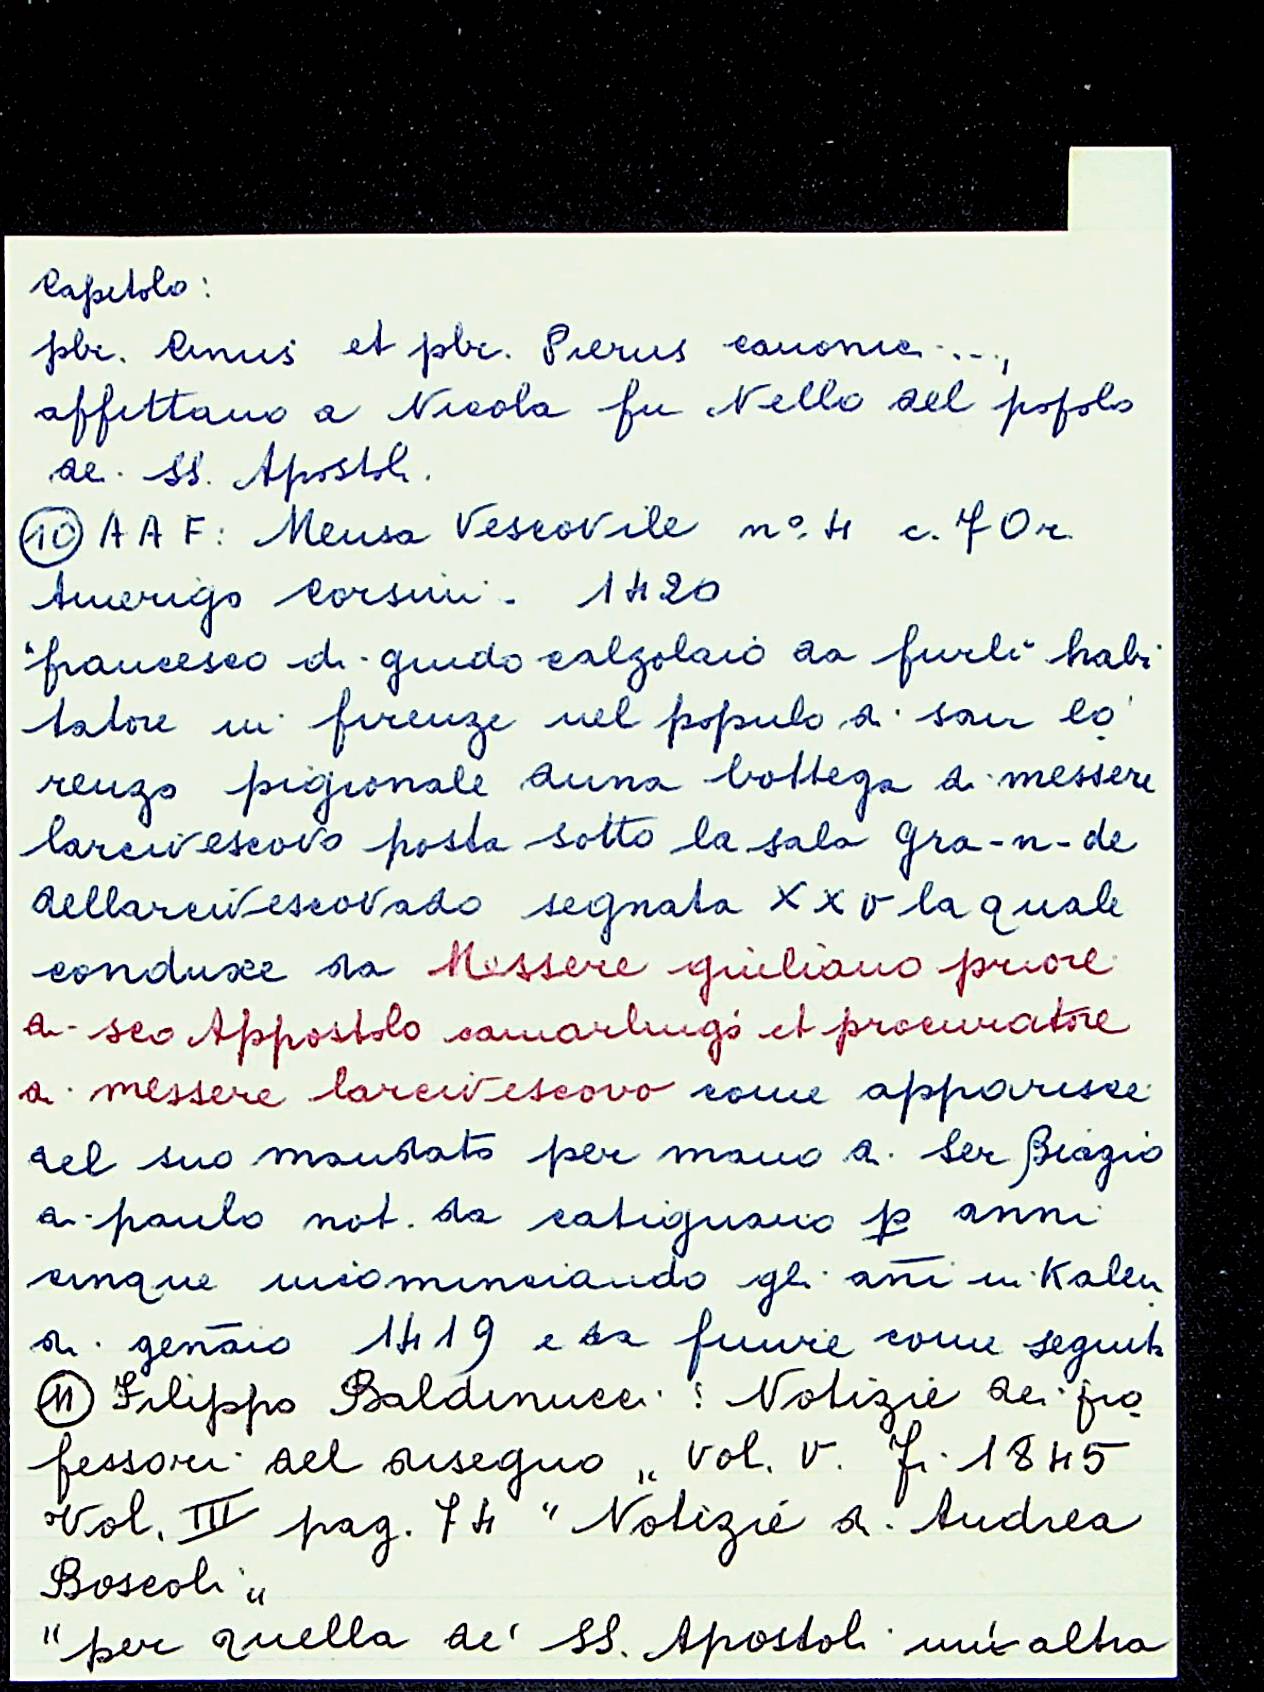 Capitolo:
pbr. Cinus et pbr. Pierus canonici...,
affittano a Nicola fu Nello del popolo
dei SS. Apostoli.
⑩ A A F: Mensa Vescovile n°. 4 c. 70r.
Amerigo Corsini. 1420
"francesco di guido calzolaio da furli habi
tatore in firenze nel populo di san lo
renzo pigionale duna bottega di messere
larcivescovo posta sotto la sala gra-n-de
dellarcivescovado segnata XXV la quale
conduxe da Messere giuliano priore
di sco Appostolo camarlingo et procuratore
di messere larcivescovo come apparisce
del suo mandato per mano di Ser Biagio
di paulo not. da catignano p anni
cinque incominciando gli añi in Kalen
di genaio 1419 e da funire come seguita
⑪ Filippo Baldinucci: Notizie dei pro
fessori del disegno „ vol. V. Fi. 1845
Vol. III pag. 74 " Notizie di Andrea
Boscoli „
" per quella de' SS. Apostoli un'altra